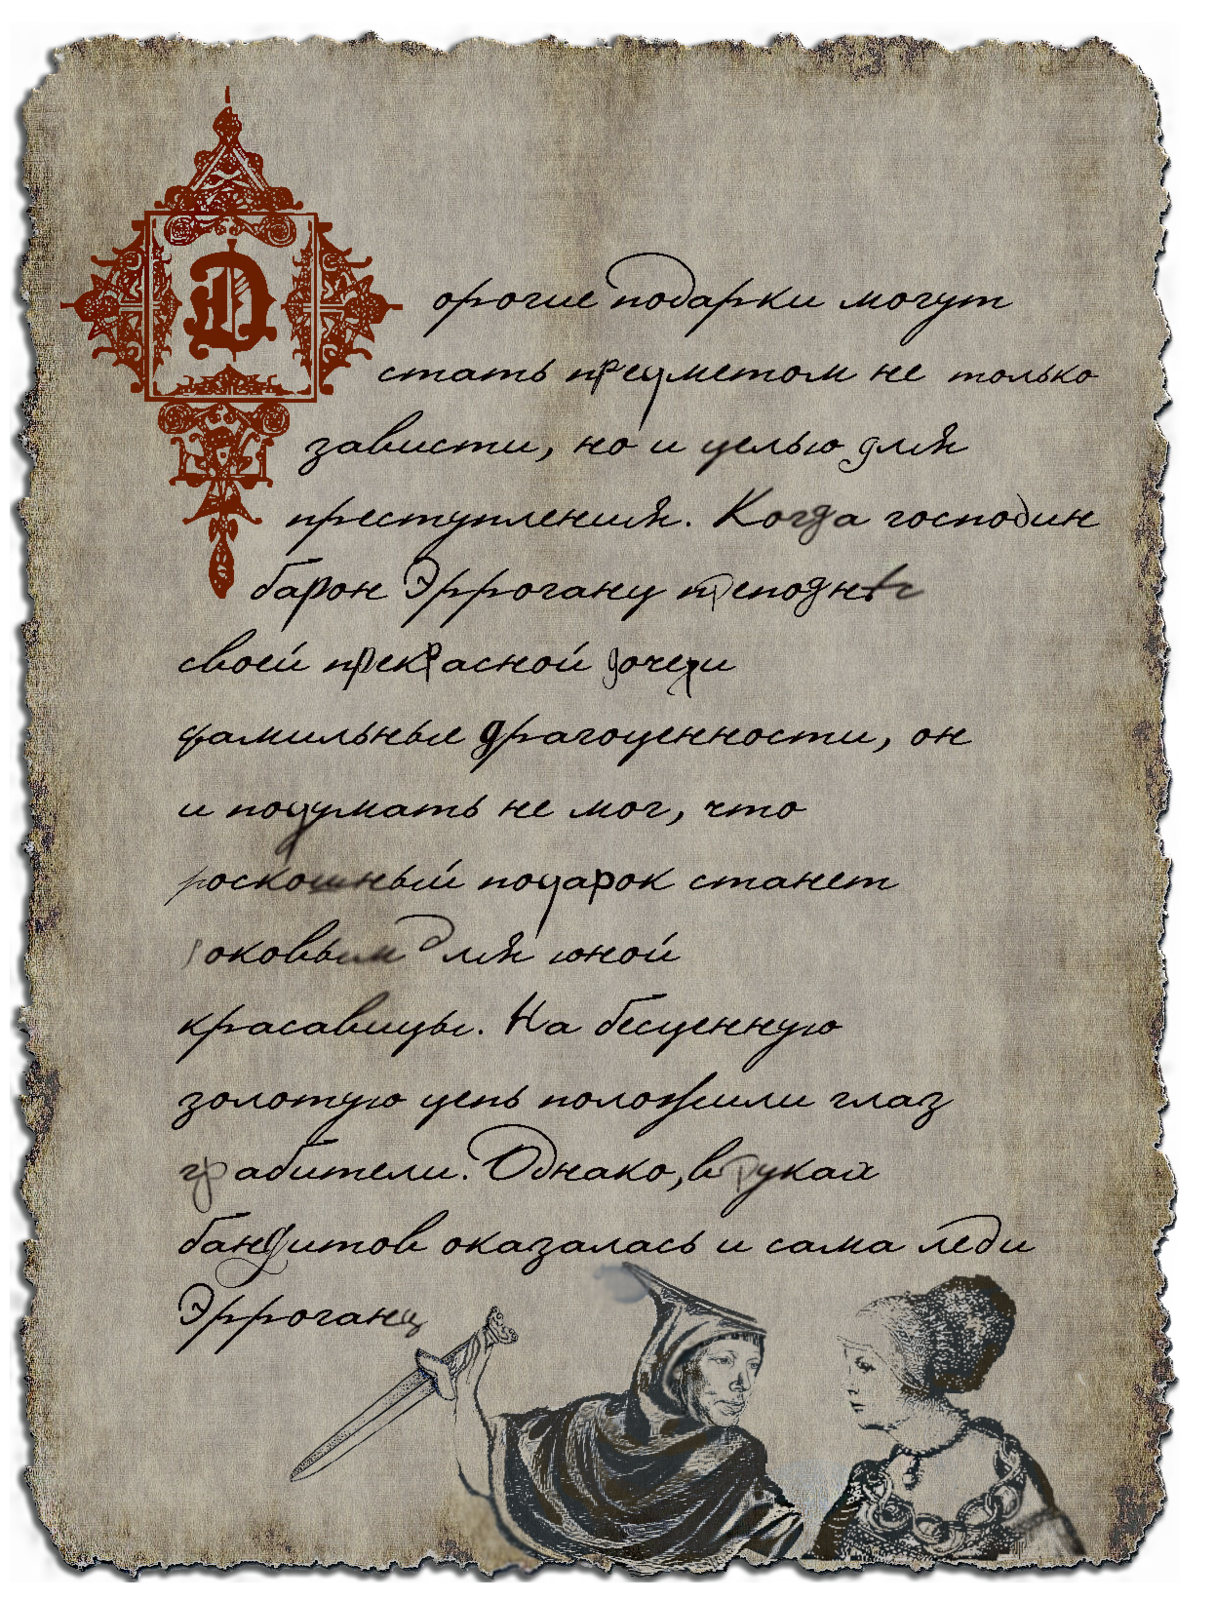 Dорогие подарки могут
стать предметом не только
зависти, но и целью для
преступления. Когда господин
барон Эрроганц преподнёс
своей прекрасной дочери
фамильные драгоценности, он
и подумать не мог, что
роскошный подарок станет
роковым для юной
красавицы. На бесценную
золотую цепь положили глаз
грабители. Однако, в руках
бандитов оказалась и сама леди
Эрроганц